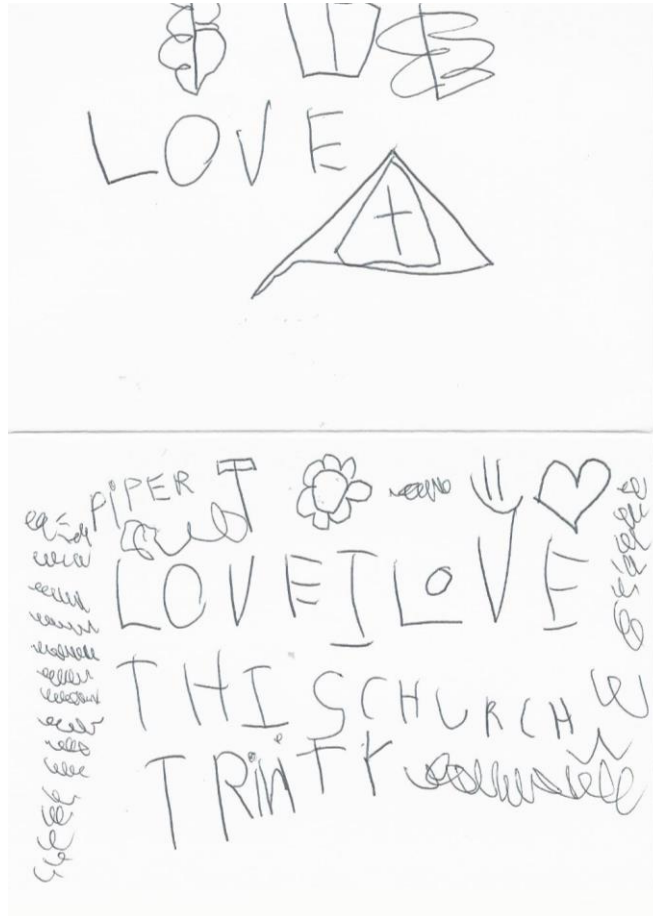 LOVE
PiPER
LOVE I LOVE
THIS CHURCH
TRiNTY